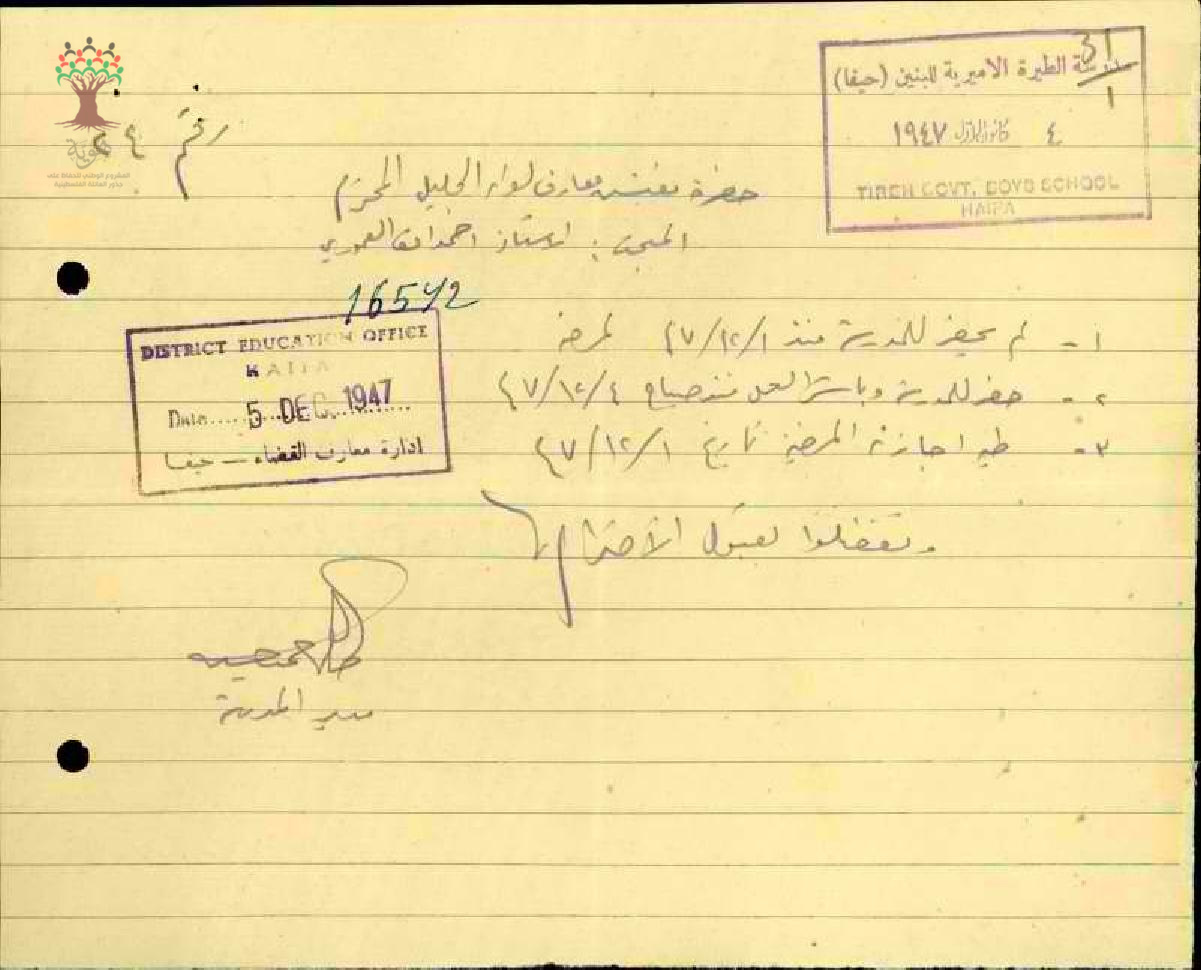 31/1
مدرسة الطيرة الاميرية للبنين (حيفا)
٤ كانون الاول ١٩٤٧
TIREH GOVT. BOYS SCHOOL
HAIFA
هوية
المشروع الوطني للحفاظ على
جذور العائلة الفلسطينية
رقم ٢٤
حضرة مفتش معارف لواء الجليل المحترم
المبحث : الاستاذ احمد العموري
16542
DISTRICT EDUCATION OFFICE
HAIFA
Date 5 DEC 1947
ادارة معارف القضاء – حيفا
١- لم يحضر للمدرسة منذ ٤٧/١٢/١ لمرضه
٢- حضر للمدرسة وباشر العمل منذ صباح ٤٧/١٢/٤
٣- طيه اجازته المرضية تاريخ ٤٧/١٢/١
وتفضلوا بقبول الاحترام
مدير المدرسة